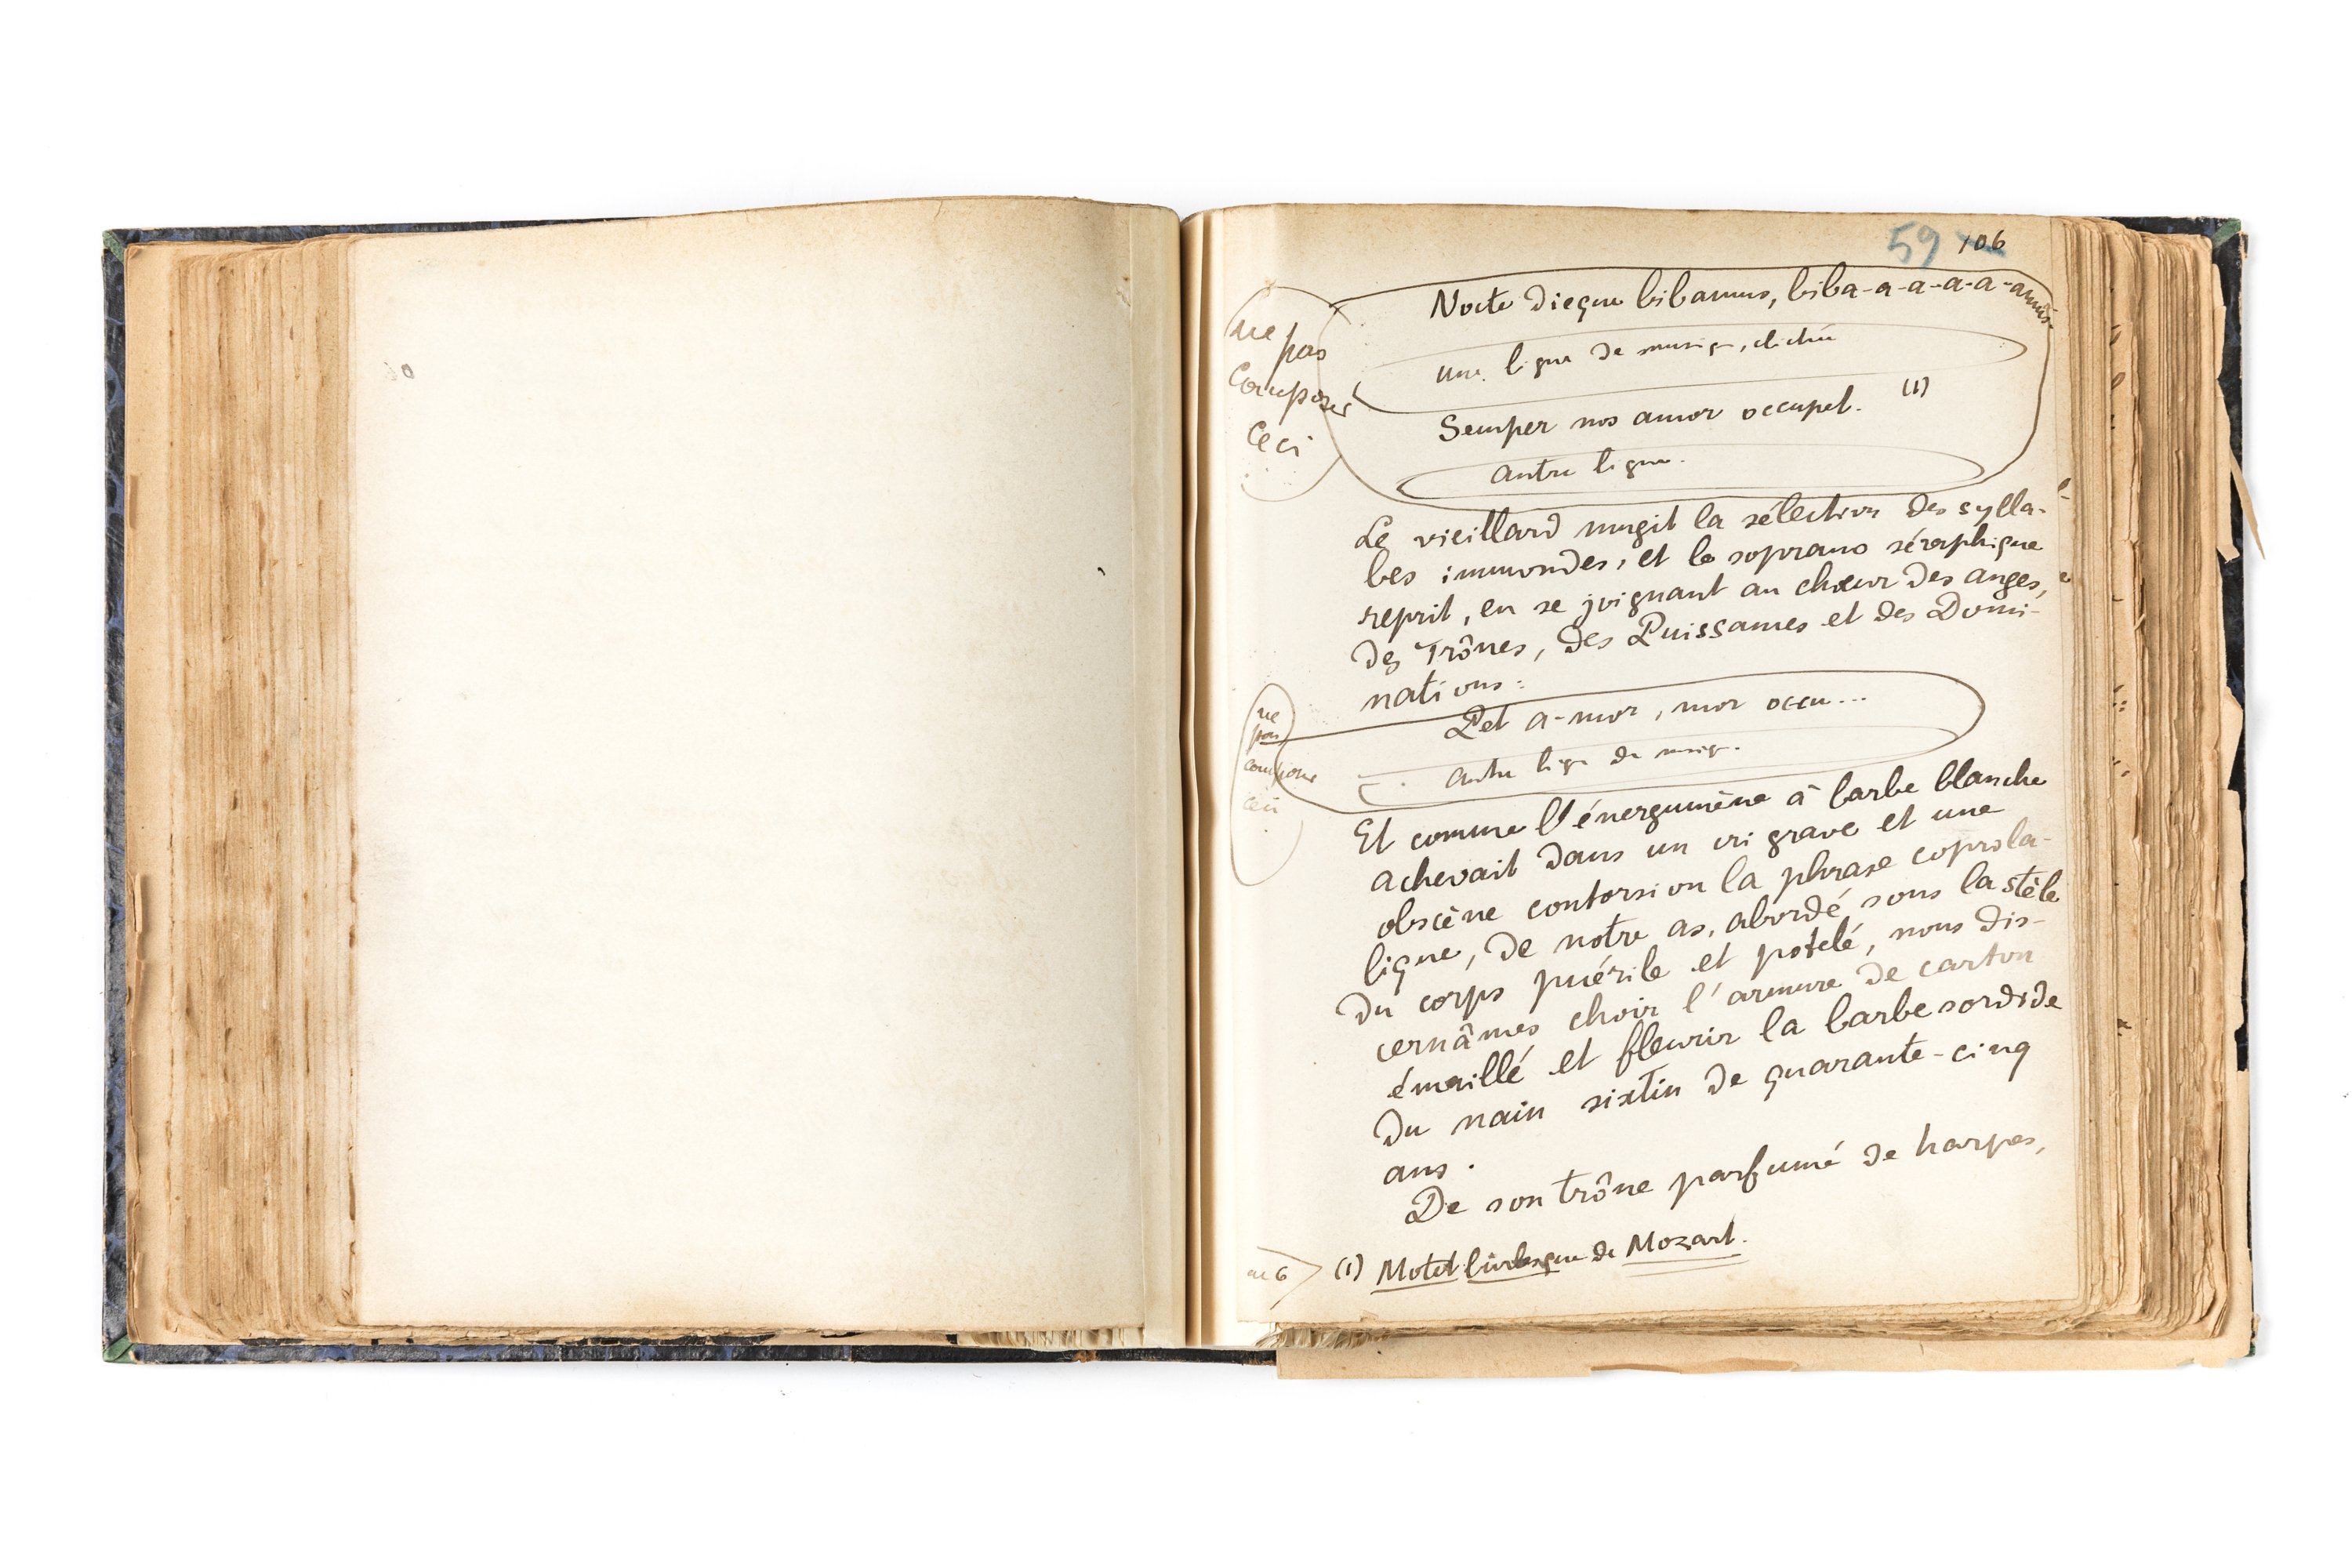 59 106
Nocte dieque bibamus, biba-a-a-a-a-amus.
ne pas
composer
ceci
une ligne de musique, clichée
Semper nos amor occupet. (1)
autre ligne.
Le vieillard mugit la sélection des sylla-
bes immondes, et le soprano séraphique
reprit, en se joignant au chœur des anges,
des Trônes, des Puissances et des Domi-
nations:
ne
pas
composer
ceci
Pet a-mor, mor occu...
autre ligne de musique.
Et comme l'énergumène à barbe blanche
achevait dans un cri grave et une
obscène contorsion la phrase coprola-
lique, de notre as, abordé sous la stèle
du corps puérile et potelé, nous dis-
cernâmes choir l'armure de carton
émaillé et fleurir la barbe sordide
du nain sixtin de quarante-cinq
ans.
De son trône parfumé de harpes,
6
(1) Motet burlesque de Mozart.